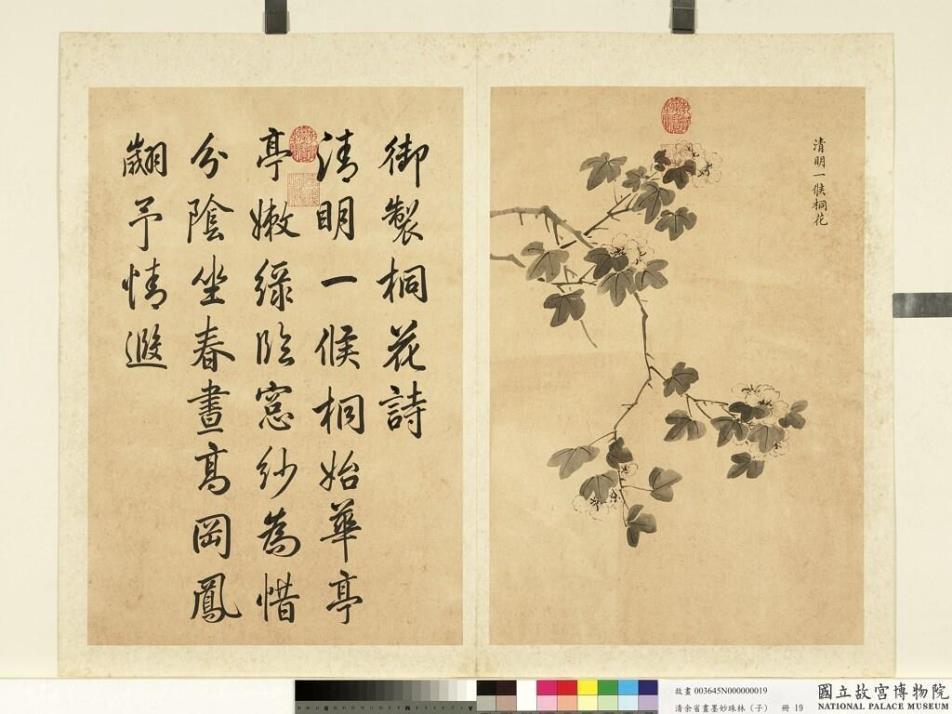 清明一候桐花
御製桐花詩
清明一候桐始華亭
亭嫩綠臨窓紗為惜
分陰坐春晝高岡鳳
翽予情遐
故畫 003645N000000019
清余省畫墨妙珠林（子） 冊 19
國立故宮博物院
NATIONAL PALACE MUSEUM